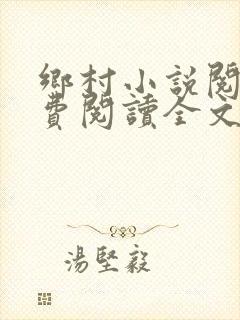 鄉村小說閱
費閱讀全文
湯堅毅